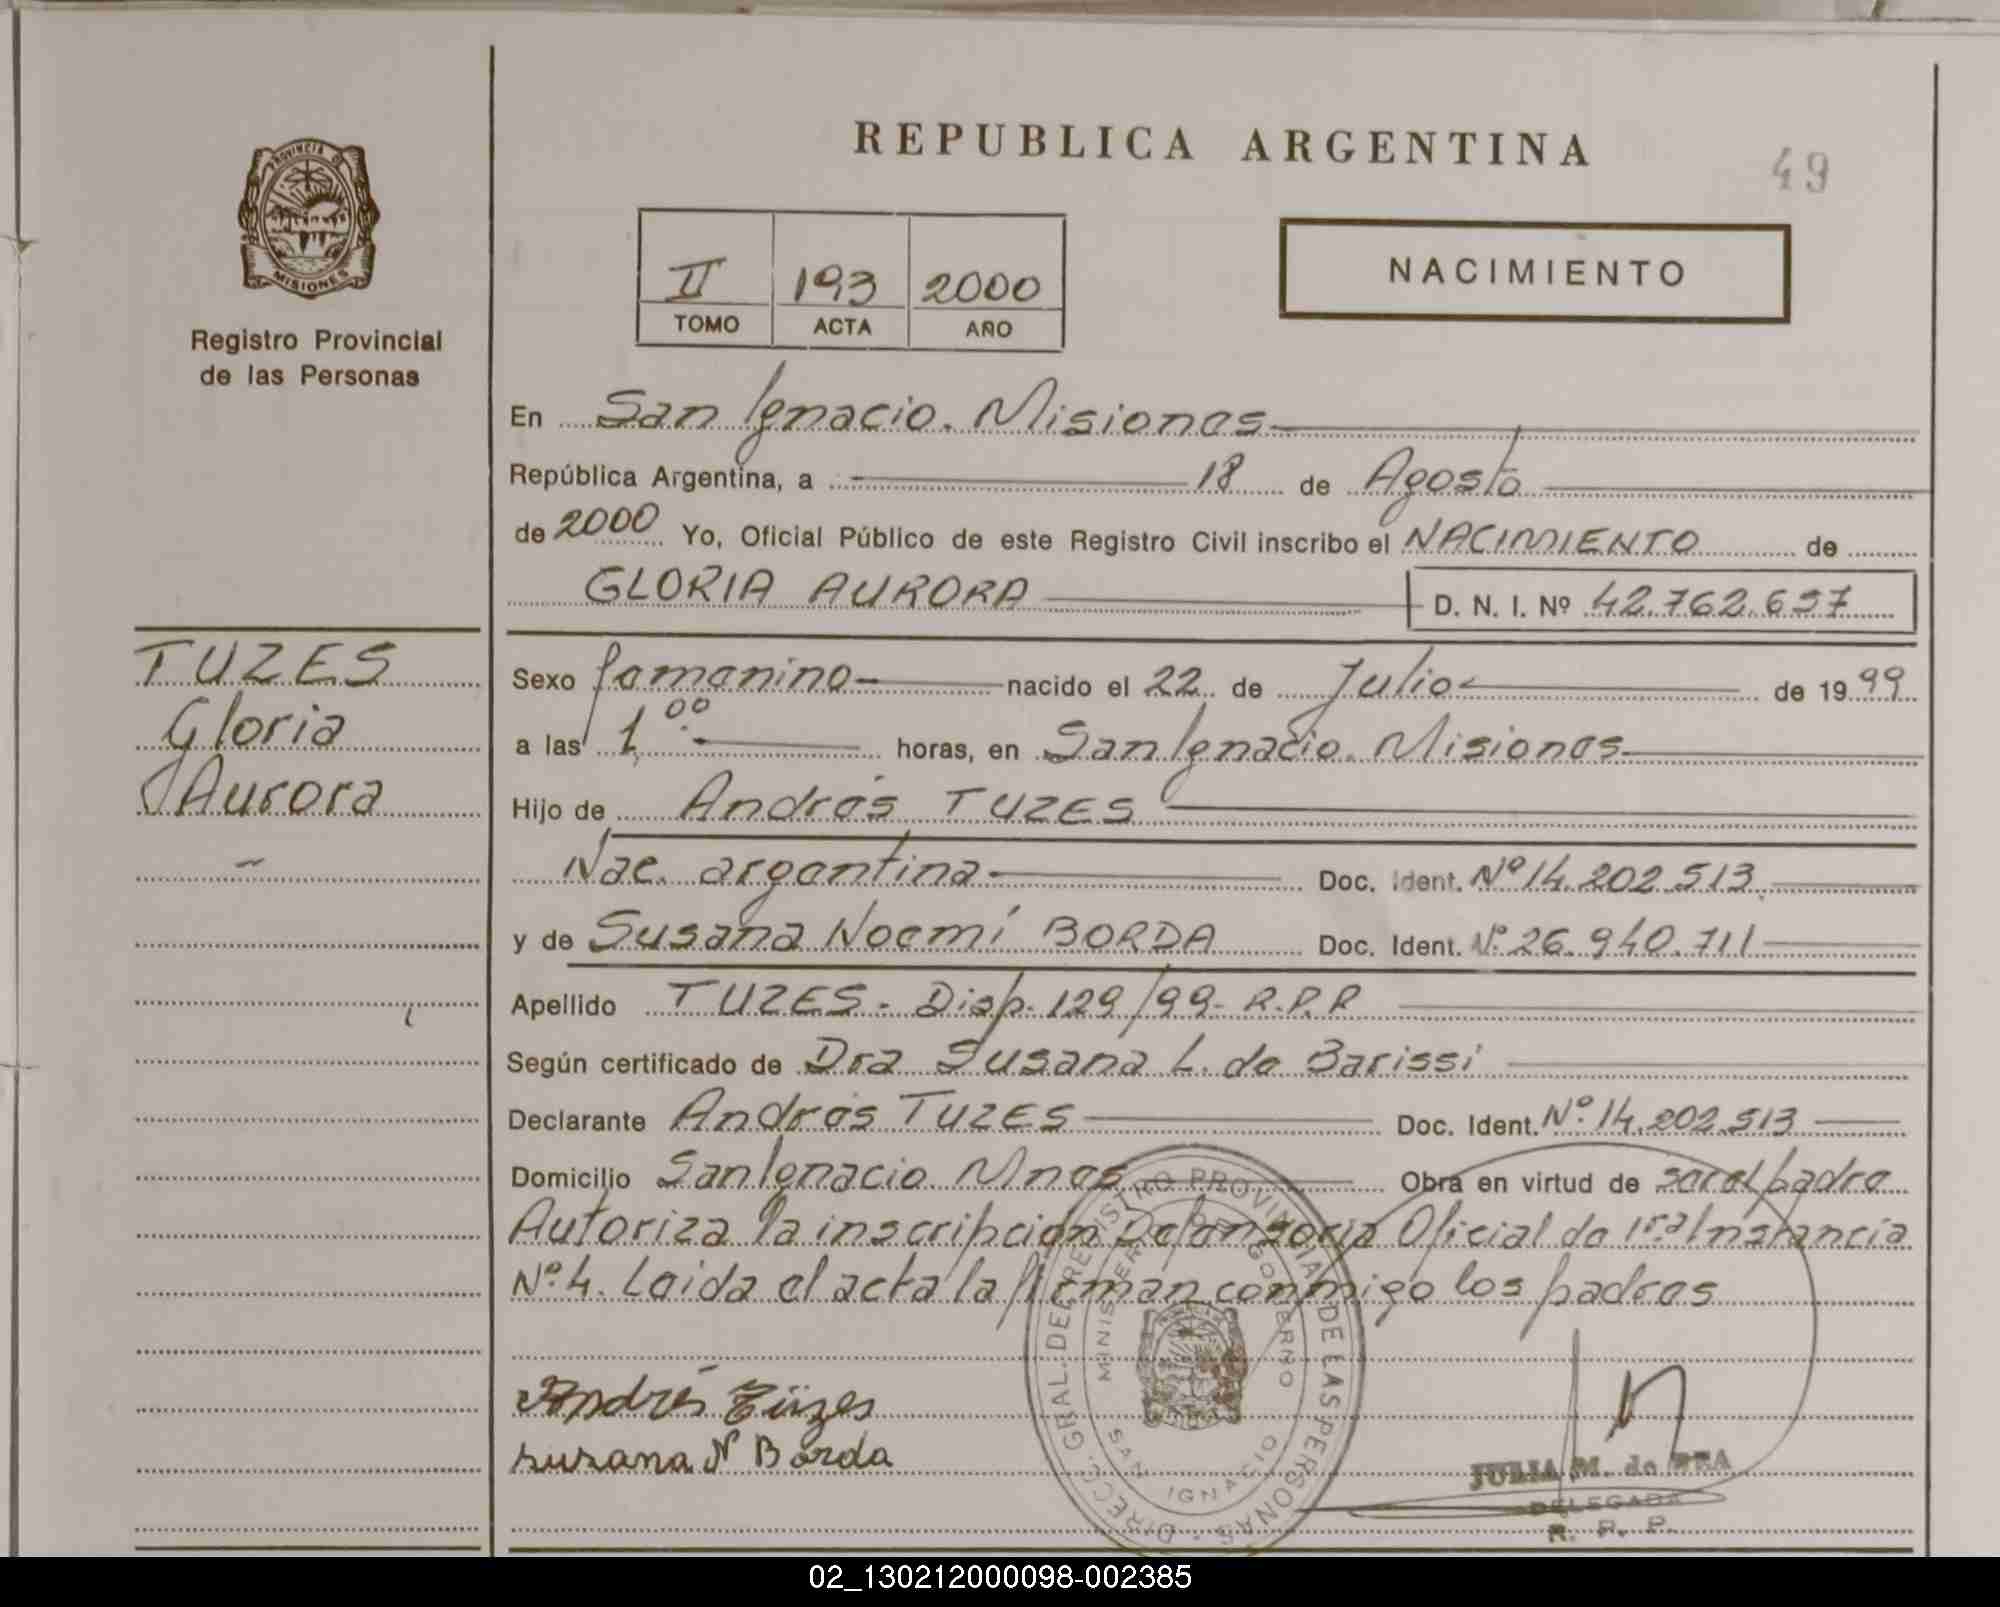 REPUBLICA ARGENTINA
49
PROVINCIA DE
MISIONES
Registro Provincial
de las Personas
II 193 2000
TOMO ACTA AÑO
NACIMIENTO
En San Ignacio. Misiones
República Argentina, a 18 de Agosto
de 2000 Yo, Oficial Público de este Registro Civil inscribo el NACIMIENTO de
GLORIA AURORA D. N. I. Nº 42.762.637
TUZES
Gloria
Aurora
Sexo femenino nacido el 22 de Julio de 1999
a las 1,00 horas, en San Ignacio. Misiones
Hijo de Andrés TUZES
Nac. argentina Doc. Ident. Nº 14.202.513
y de Susana Noemí BORDA Doc. Ident. Nº 26.940.711
Apellido TUZES. Disp. 129/99. R.P.P
Según certificado de Dra Susana L. de Barissi
Declarante Andrés TUZES Doc. Ident. Nº 14.202.513
Domicilio San Ignacio Mnes Obra en virtud de ser el padre
Autoriza la inscripción Defensoría Oficial de 1ra Instancia
Nº 4. Leida el acta la firman conmigo los padres
Andrés Tüzes
Susana N Borda
DIRECC. GRAL. DEL REGISTRO PROVINCIAL DE LAS PERSONAS
MINISTERIO DE GOBIERNO
SAN IGNACIO
JULIA M. de REA
DELEGADA
R. P. P.
02_130212000098-002385